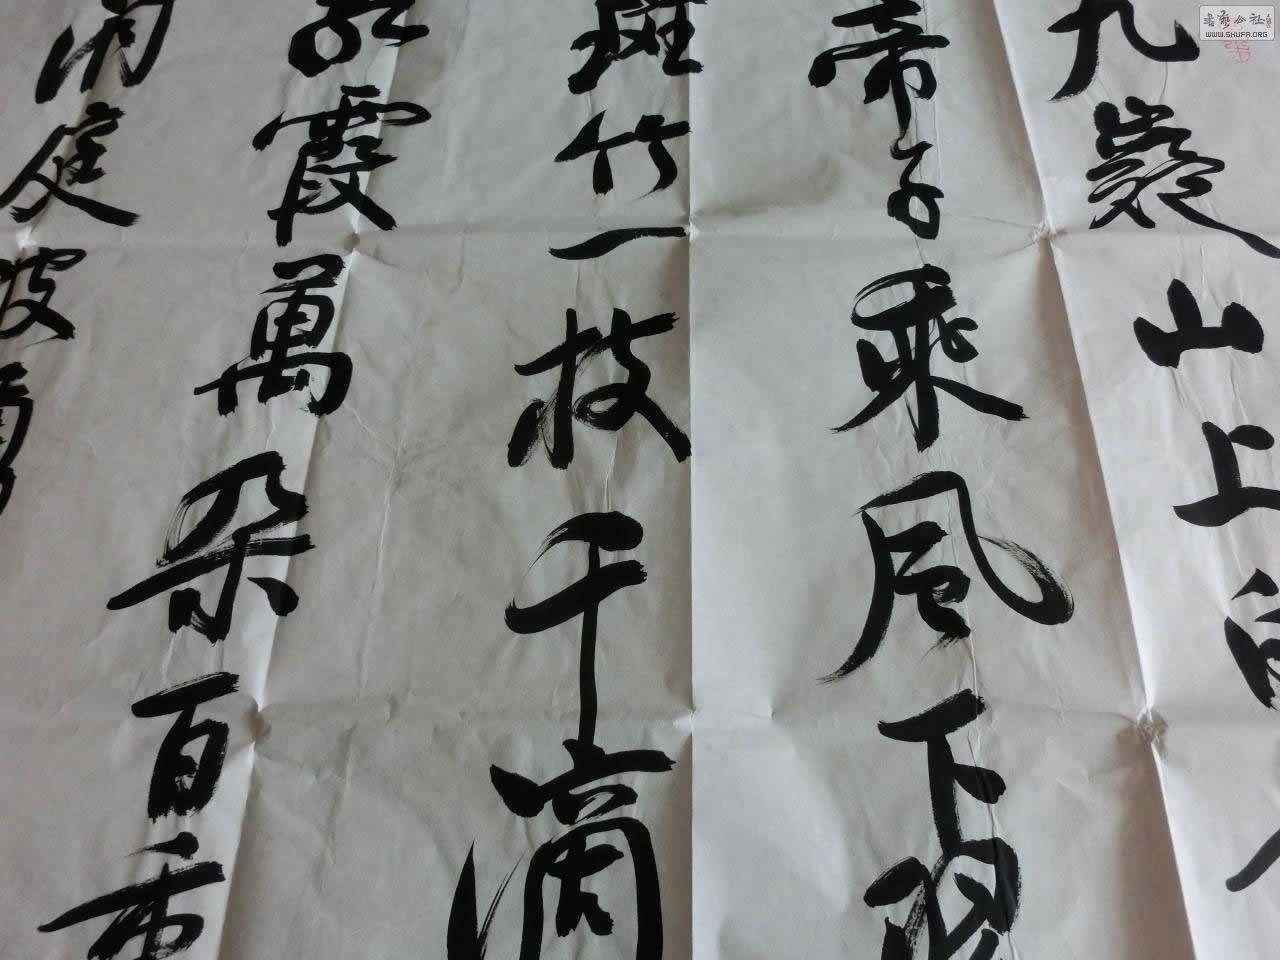 書藝公社
WWW.SHUFA.ORG
九嶷山上白
帝子乘風下
斑竹一枝千滴
紅霞萬朵百重
洞庭波